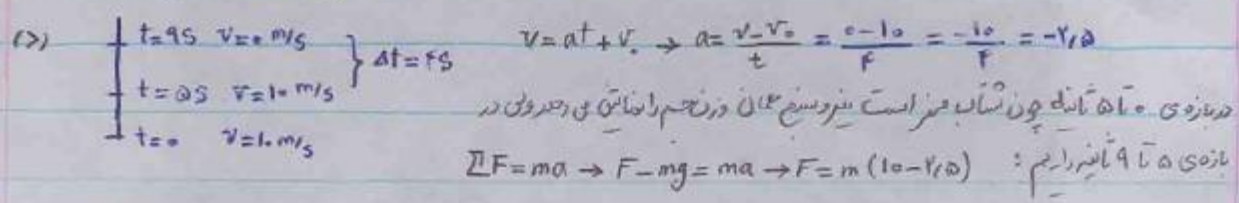 (د) t=۹s v=۰ m/s
t=۵s v=۱۰ m/s } Δt=۴s
t=۰ v=۱۰ m/s
v=at+v₀ → a= (v-v₀)/t = (۰-۱۰)/۴ = -۱۰/۴ = -۲٫۵
در بازه‌ی ۰ تا ۵ ثانیه چون شتاب صفر است نیروسنج همان وزن جسم را نمایش می‌دهد ولی در
بازه‌ی ۵ تا ۹ ثانیه داریم : ΣF=ma → F-mg=ma → F=m(۱۰-۲٫۵)